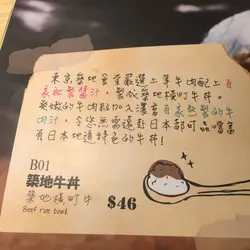 東京築地食堂嚴選上等牛肉配上自
家秘製醬汁，製成築地橫町牛丼。
柔嫩的牛肉粒加入濃富自家熬製的牛
肉汁，令您無需遠赴日本都可品嚐當
有日本地道特色的牛丼！
B01
築地牛丼
築地橫町牛
Beef rice bowl
$46